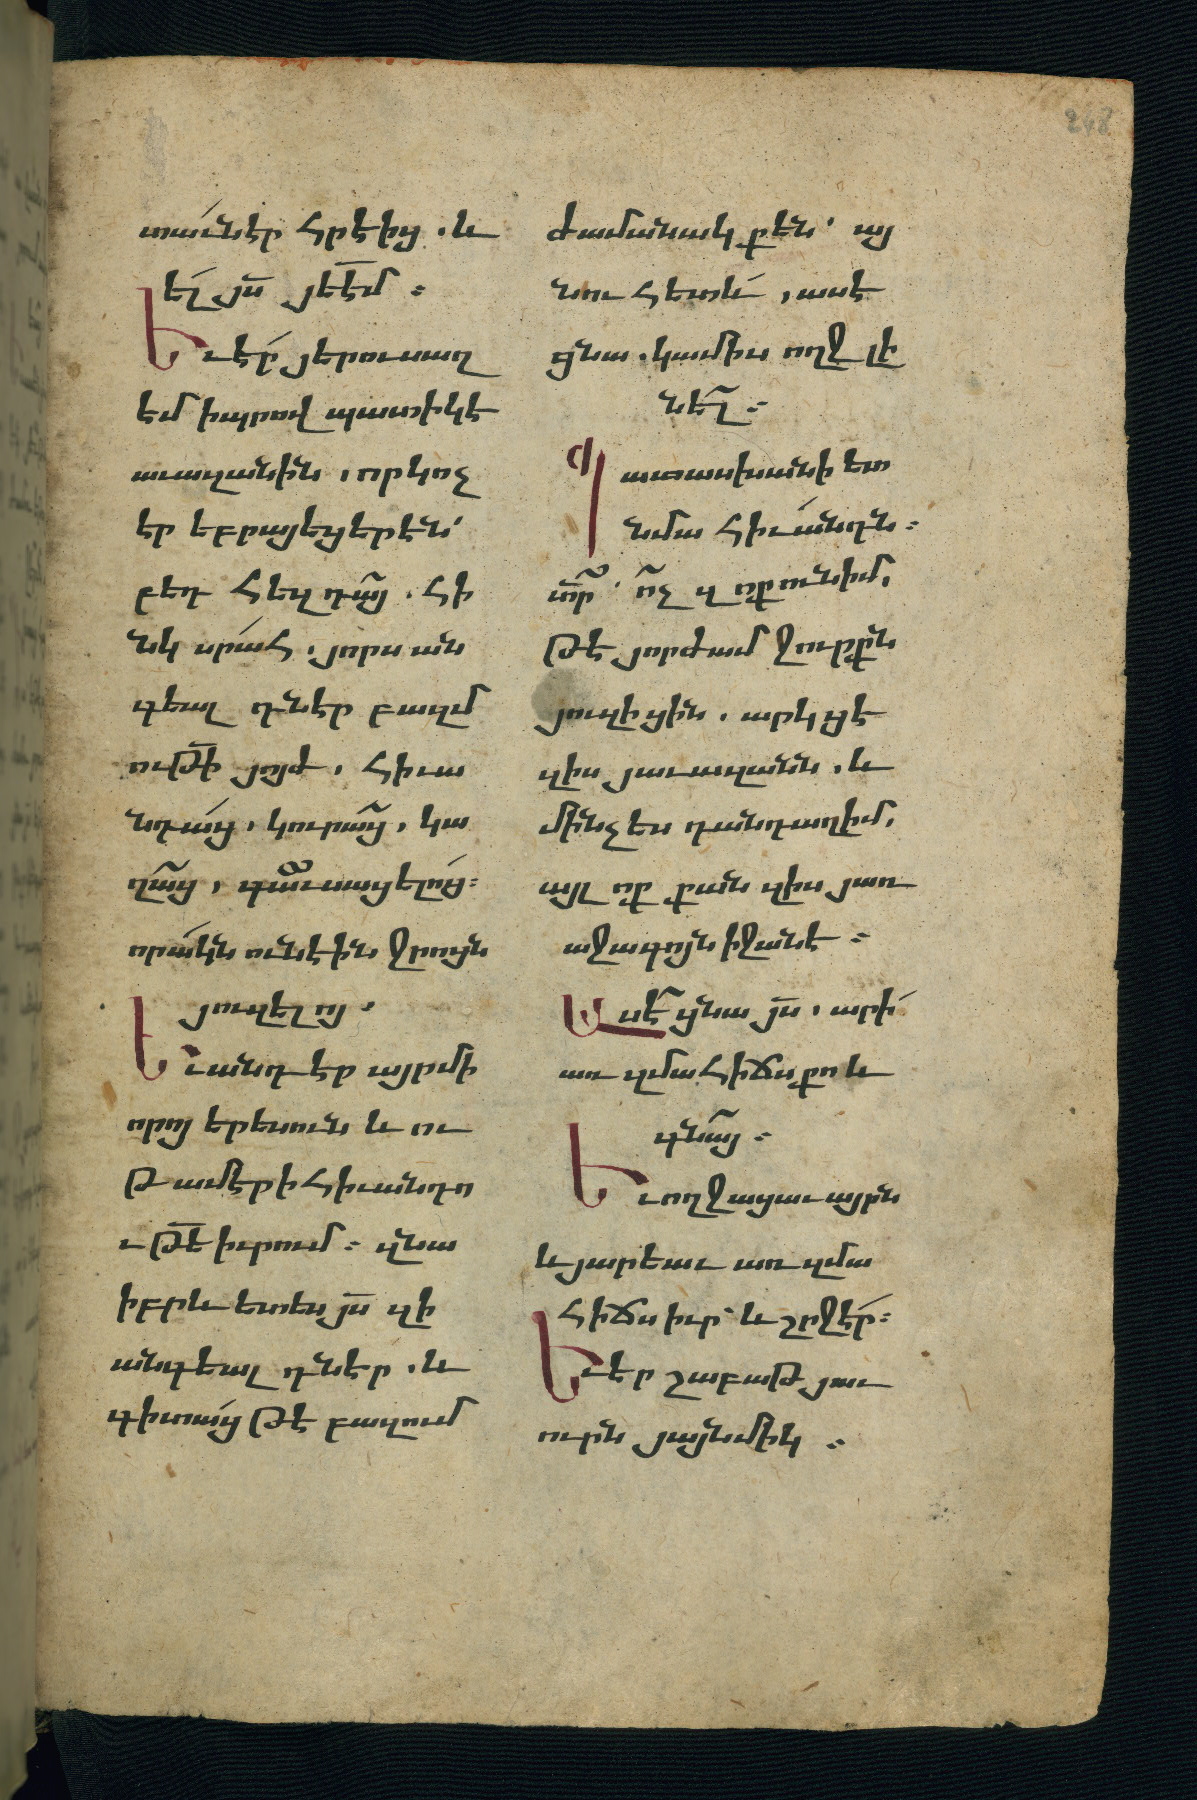 248
տաւնէր հրէից. և
ել յս յէէմ ։
Եւ էր յերուսաղ
էմ ի պրով պատիկէ
աւազանին, որ կոչ
էր եբրայեցերէն՝
բեդհեզդայ. հի
նկ սրահ, յորս ան
գեալ դնէր բազմ
ութի յոյժ, հիւա
նդաց, կուրաց, կա
ղաց, գաւսացելոց։
որակն ունէին ջրոյն
յուզելոյ.
Եւ անդ էր այր մի
որոյ երեսուն և ու
թ ամ էր ի հիւանդո
ւթե իւրում ։ զնա
իբրև ետես յս զի
անգեալ դնէր. և
գիտաց թէ բազում
ժամանակ քէն՝ այ
նու հետև, ասէ
ցնա. կամիս ողջ լի
նել ։
Պատասխանի ետ
նմա հիւանդն ։
տր՝ ոչ զոք ունիմ,
թէ յորժամ ջուրքն
յուզիցին, արկցէ
զիս յաւազանն. և
մինչ ես դանդաղիմ,
այլ ոք քան զիս յառ
աջագոյն իջանէ ։
Ասէ ցնա յս, արի՛
առ զմահիճս քո և
գնայ ։
Եւ ողջացաւ այրն
և յարեաւ առ զմա
հիճս իւր՝ և շրջէր։
Եւ էր շաբաթ յաւ
ուրն յայնմիկ ։